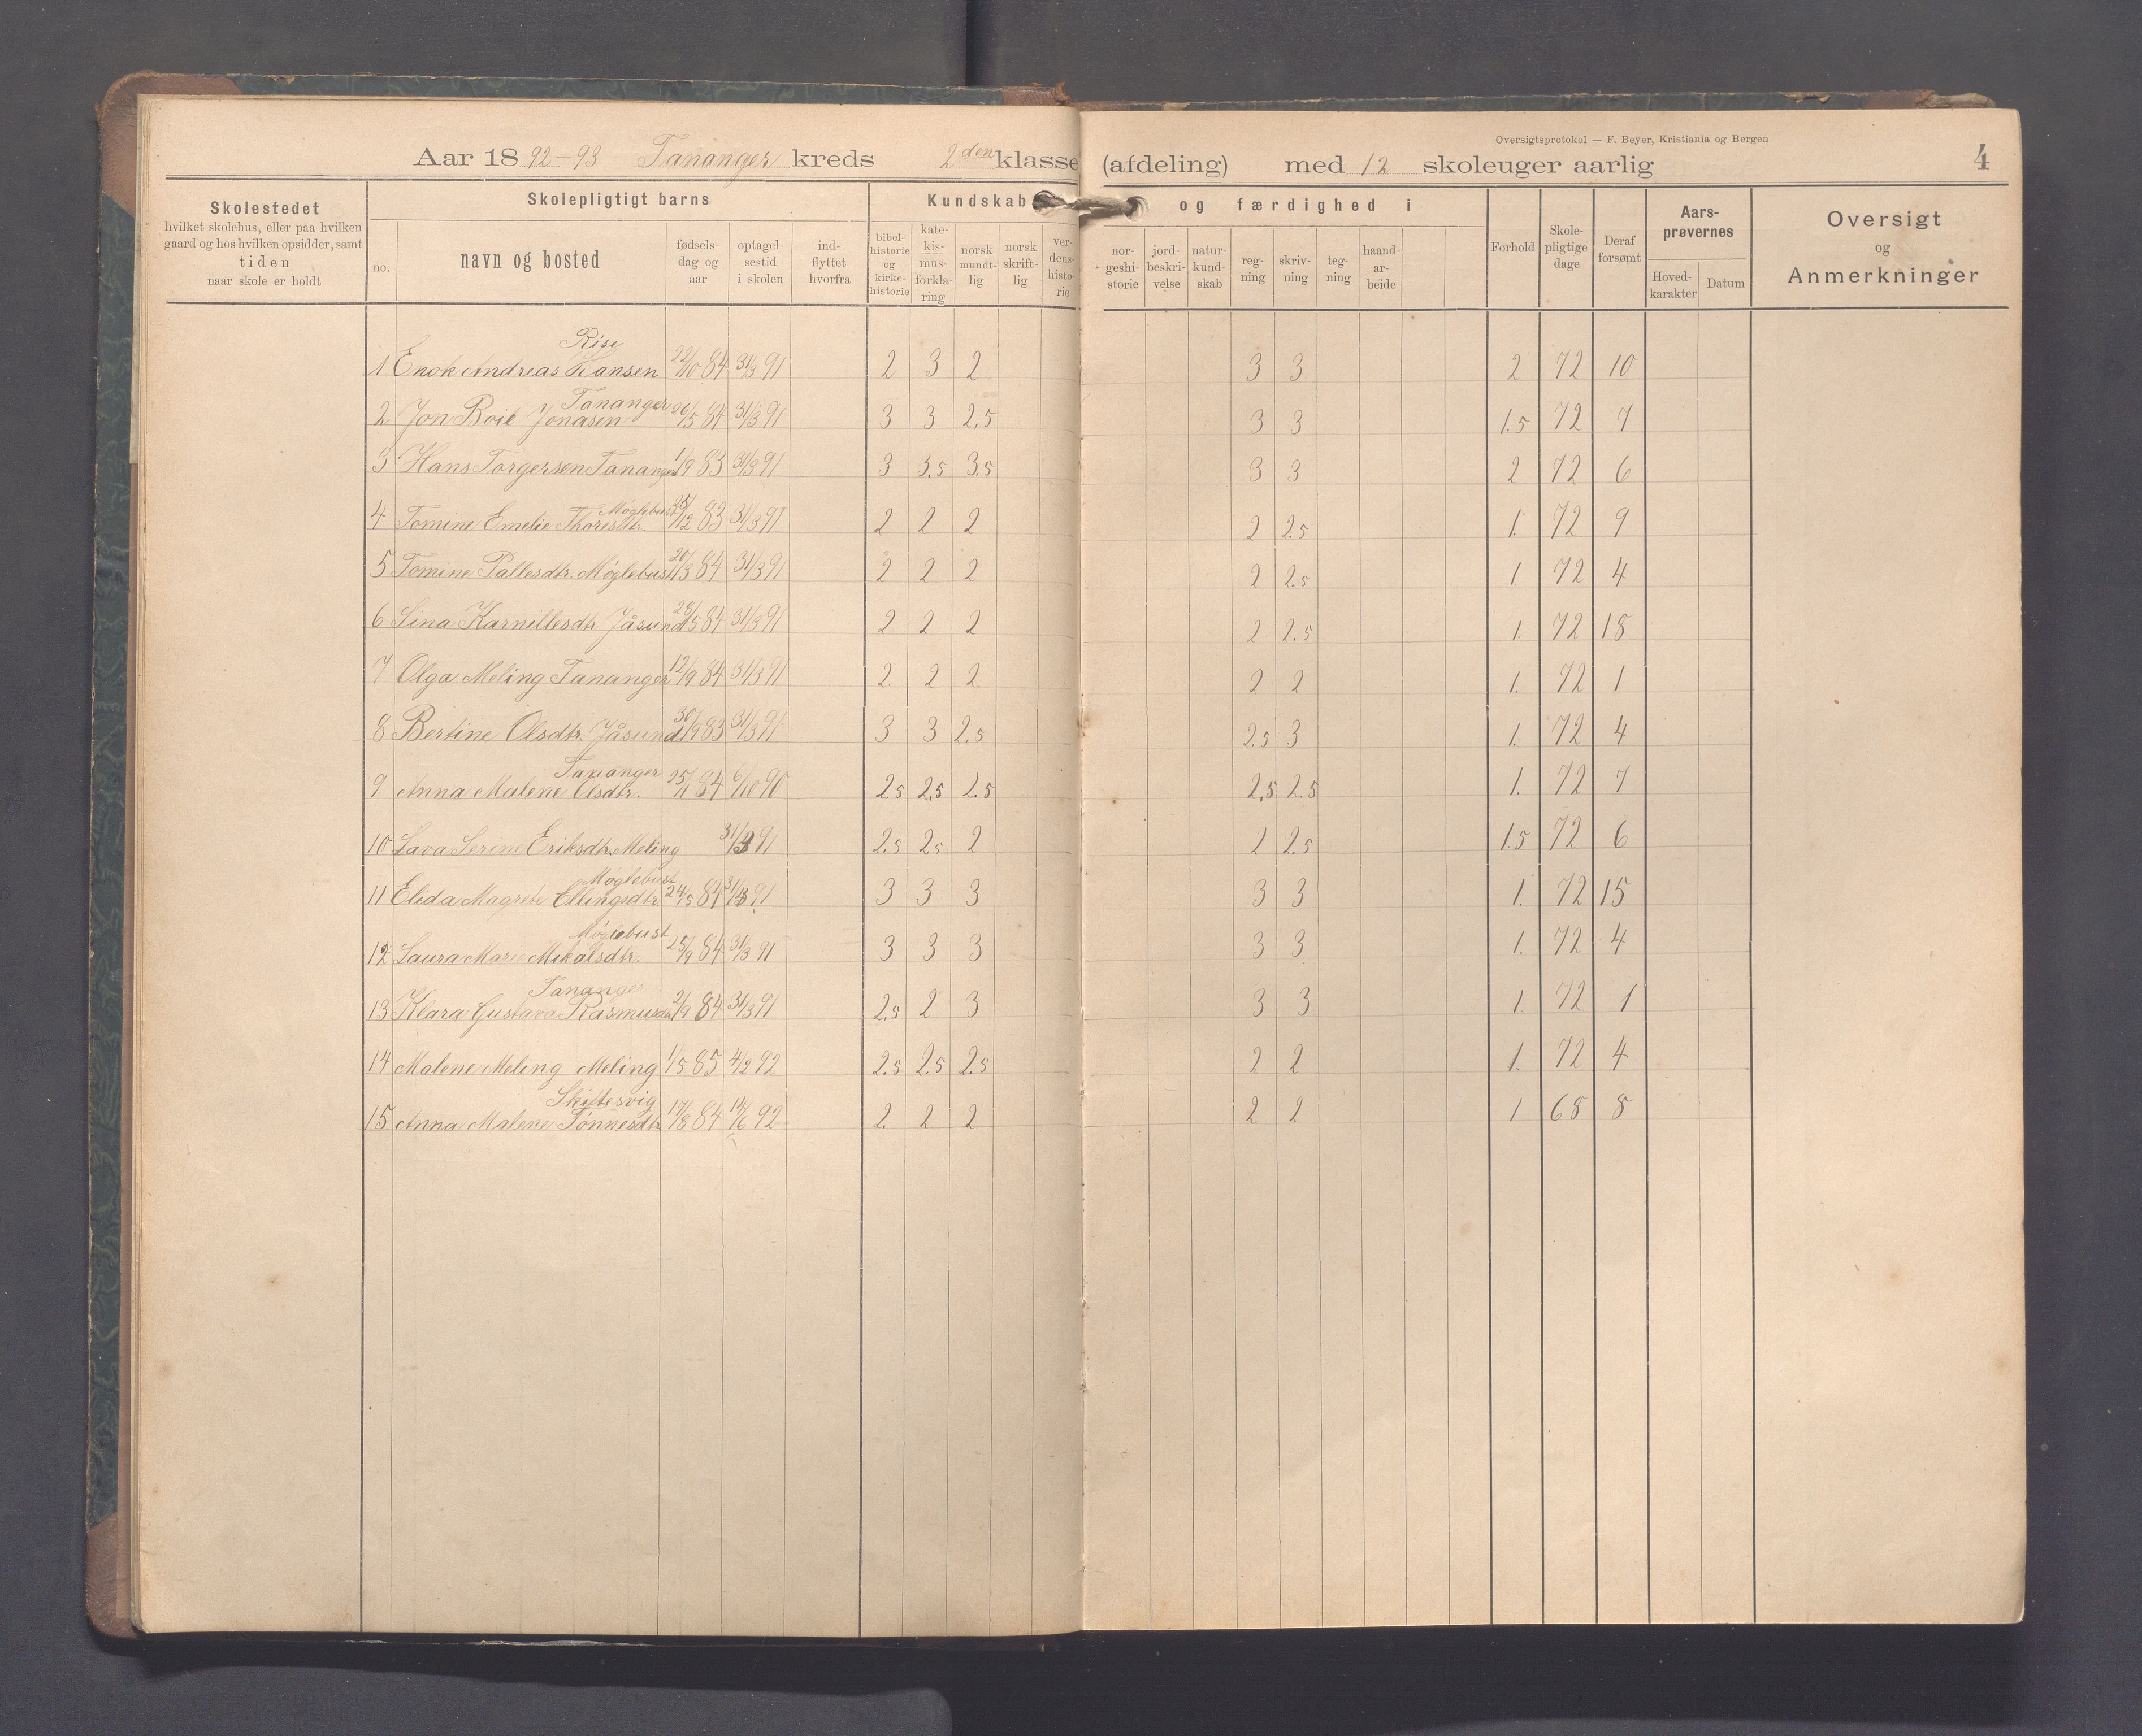 Oversigtsprotokol — F. Beyer, Kristiania og Bergen
Aar 1892–93 Tananger kreds 2den klasse (afdeling) med 12 skoleuger aarlig 4
Skolestedet
hvilket skolehus, eller paa hvilken
gaard og hos hvilken opsidder, samt
tiden
naar skole er holdt
Skolepligtigt barns
no.
navn og bosted
fødsels-
dag og
aar
optagel-
sestid
i skolen
ind-
flyttet
hvorfra
Kundskab og færdighed i
bibel-
historie
og
kirke-
historie
kate-
kis-
mus-
forkla-
ring
norsk
mundt-
lig
norsk
skrift-
lig
ver-
dens-
histo-
rie
nor-
geshi-
storie
jord-
beskri-
velse
natur-
kund-
skab
reg-
ning
skriv-
ning
teg-
ning
haand-
ar-
beide
Forhold
Skole-
pligtige
dage
Deraf
forsømt
Aars-
prøvernes
Hoved-
karakter
Datum
Oversigt
og
Anmerkninger
Rise
1 Enok Andreas Hansen 22/10 84 31/3 91 2 3 2 3 3 2 72 10
Tananger
2 Jon Boie Jonasen 26/5 84 31/3 91 3 3 2,5 3 3 1.5 72 7
3 Hans Torgersen Tananger 1/9 83 31/3 91 3 3.5 3.5 3 3 2 72 6
Møglebust
4 Tomine Emelie Thoresdtr. 25/12 83 31/3 91 2 2 2 2 2.5 1. 72 9
5 Tomine Pallesdtr. Møglebust 20/3 84 31/3 91 2 2 2 2 2.5 1 72 4
6 Sina Karnillesdtr Jåsund 28/5 84 31/3 91 2 2 2 2 2.5 1. 72 18
7 Olga Meling Tananger 12/9 84 31/3 91 2. 2 2 2 2 1. 72 1
8 Bertine Olsdtr. Jåsund 30/9 83 31/3 91 3 3 2.5 2.5 3 1. 72 4
Tananger
9 Anna Malene Olsdtr. 25/1 84 6/10 90 2.5 2,5 2.5 2,5 2.5 1. 72 7
10 Lava Serine Eriksdtr. Meling 31/3 91 2.5 2.5 2 2 2.5 1.5 72 6
Møglebust
11 Elida Magrete Ellingsdtr 24/5 84 31/3 91 3 3 3 3 3 1. 72 15
Møglebust
12 Laura Marie Mikalsdtr. 25/9 84 31/3 91 3 3 3 3 3 1. 72 4
Tananger
13 Klara Gustava Rasmusdtr 2/9 84 31/3 91 2,5 2 3 3 3 1. 72 1
14 Malene Meling Meling 1/5 85 4/2 92 2.5 2.5 2.5 2 2 1. 72 4
Skiftesvig
15 Anna Malene Tønnesdtr 17/8 84 14/6 92 2. 2 2 2 2 1 68 8